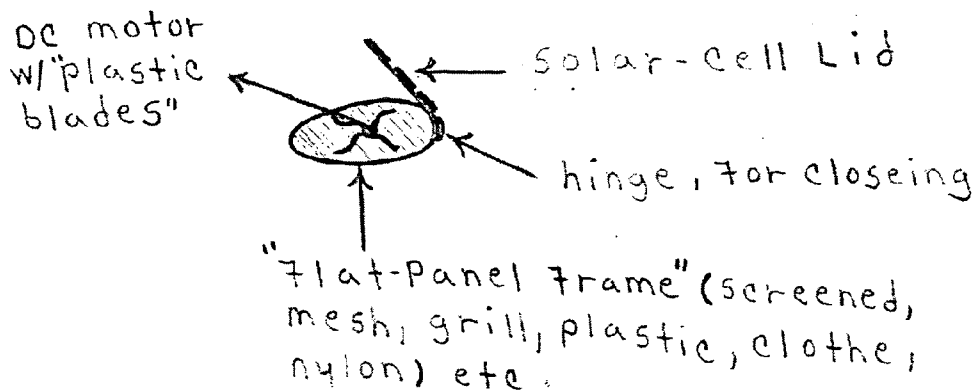 DC motor
w/"plastic
blades"
solar-cell Lid
hinge, for closeing
"Flat-Panel Frame" (screened,
mesh, grill, plastic, clothe,
nylon) etc.